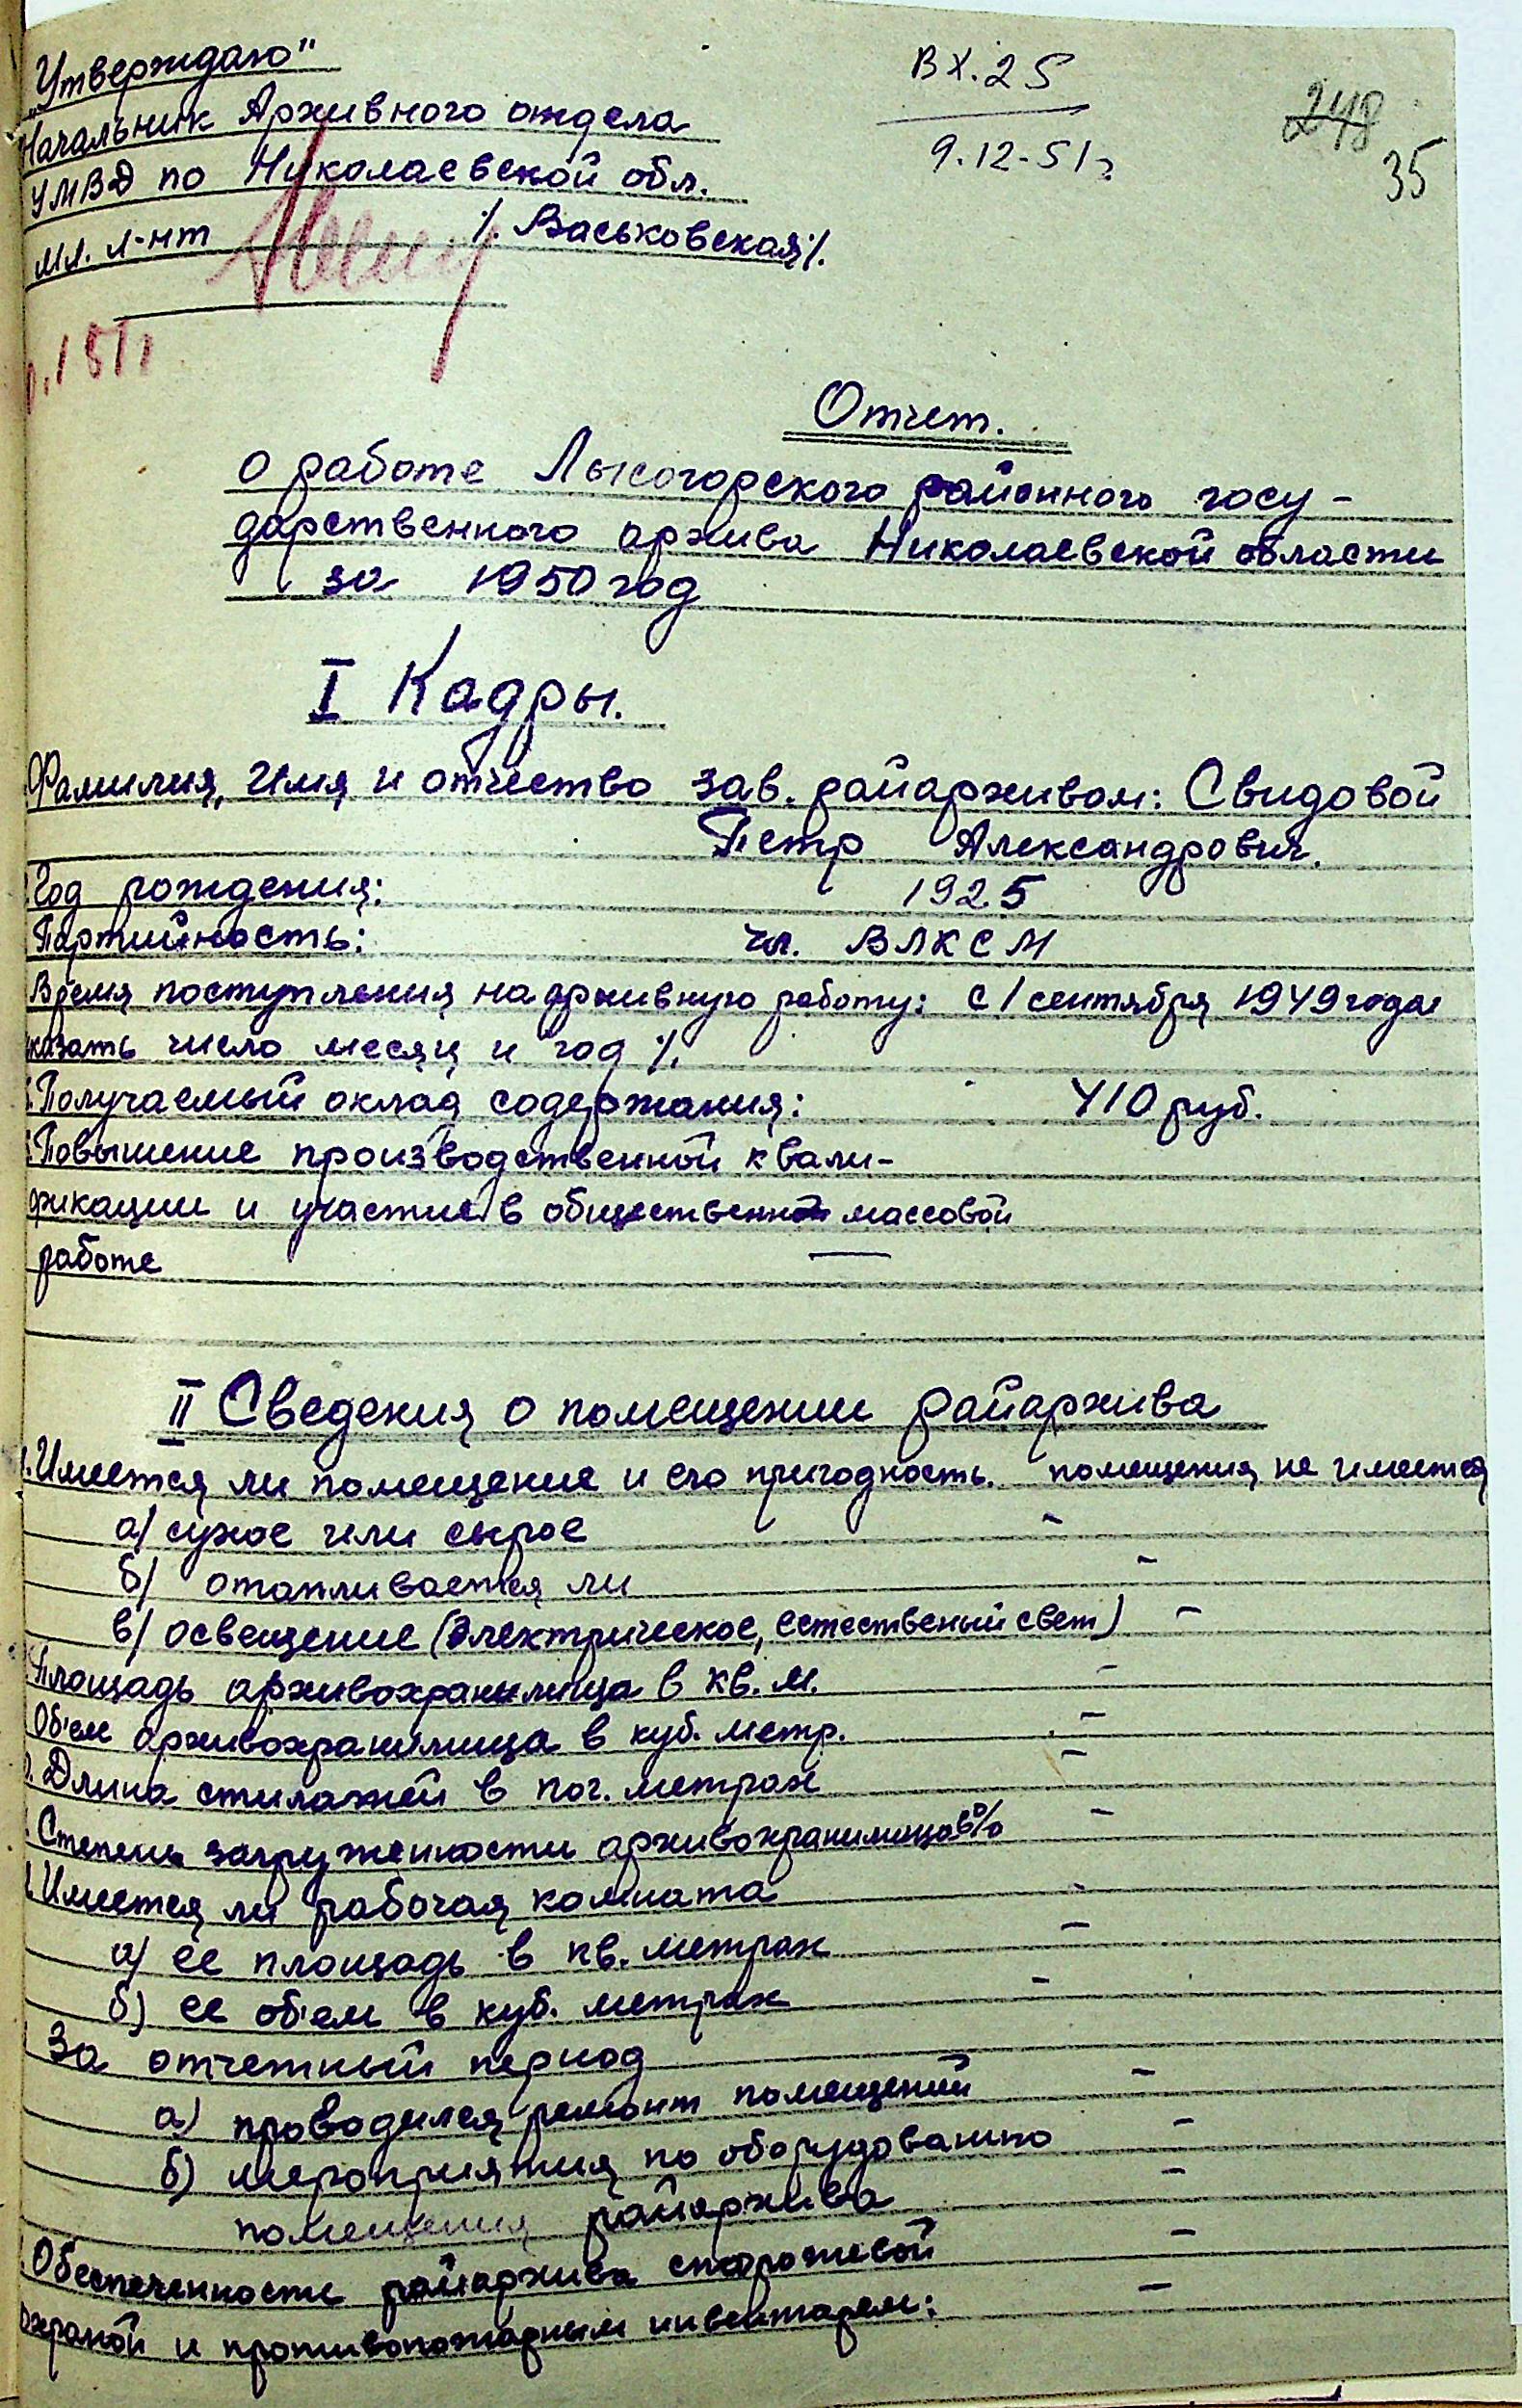 „Утверждаю"
Начальник Архивного отдела
УМВД по Николаевской обл.
мл. л-нт ⁒ Васьковская ⁒.
ВХ. 25
9.12-51г
248
35
Отчет.
о работе Лысогорского районного госу-
дарственного архива Николаевской области
за 1950 год
I Кадры.
Фамилия, Имя и отчество зав. райархивом: Свидовой
Петр Александрович.
Год рождения: 1925
Партийность: чл. ВЛКСМ
Время поступления на архивную работу: с 1 сентября 1949 года
казать число месяц и год ⁒
Получаемый оклад содержания: 410 руб.
Повышение производственной квали-
фикации и участие в общественно массовой
работе —
II Сведения о помещении райархива
1. Имеется ли помещение и его пригодность. помещения не имеется
а/ сухое или сырое -
б/ отапливается ли -
в/ освещение (Электрическое, естественый свет) -
Площадь архивохранилища в кв. м. -
Об'ем архивохранилища в куб. метр. -
Длина стилажей в пог. метрах -
Степень загруженности архивохранилища в % -
Имеется ли рабочая комната -
а/ ее площадь в кв. метрах -
б) ее об'ем в куб. метрах -
За отчетный период
а) проводился ремонт помещений -
б) мероприятия по оборудованию -
помещения райархива -
Обеспеченности райархива сторожевой -
охраной и противопожарным инвентарем: -